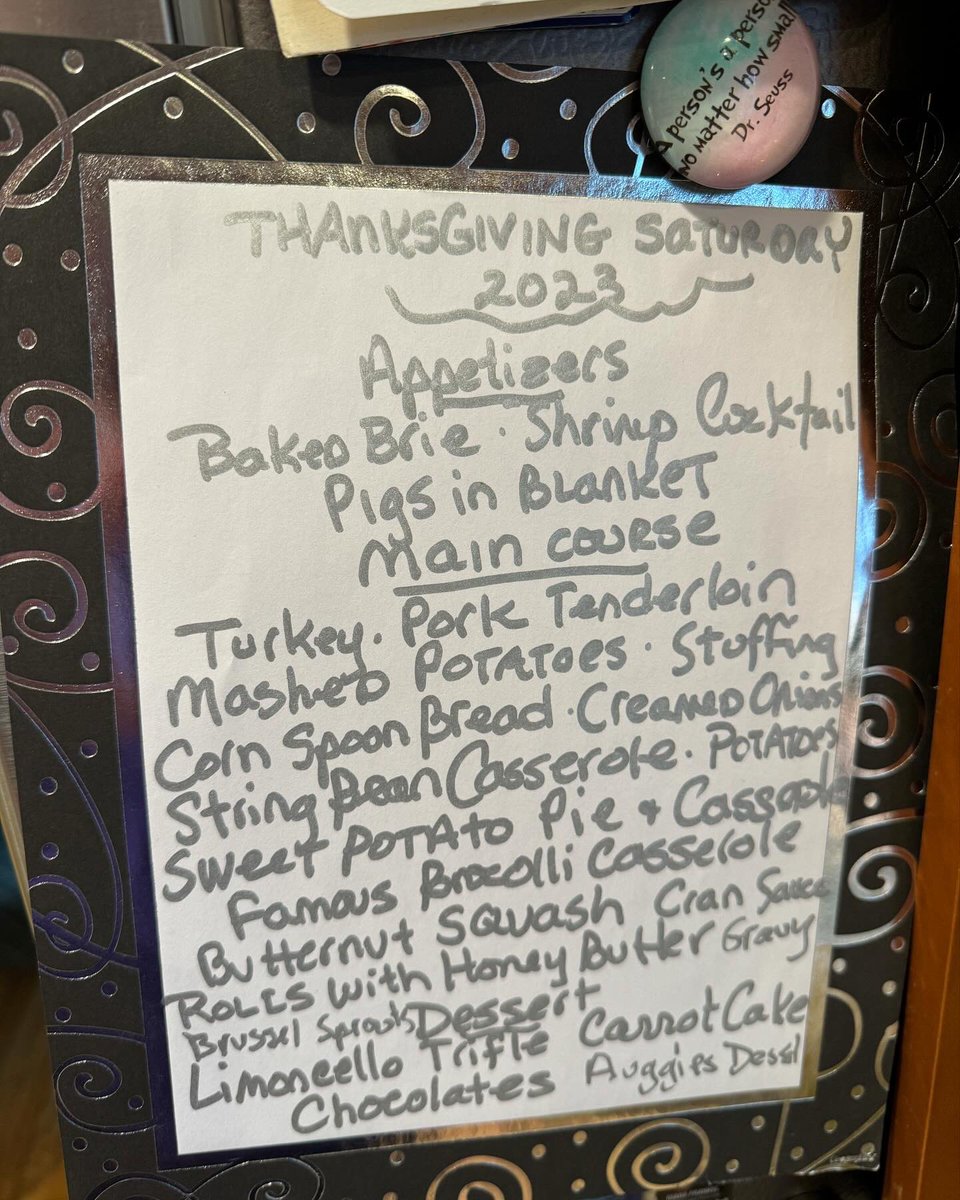 A person's a perso
no matter how smal
Dr. Seuss
THANKSGIVING SATURDAY
2023
Appetizers
BAKED BRIE · Shrimp Cocktail
PIgs in BLANKET
Main course
Turkey · Pork Tenderloin
MasheD POTATOES · Stuffing
Corn Spoon Bread · CreameD Onions
String Bean Casserole · POTATOES
Sweet POTATO Pie &
Famous Brocolli Casserole
Butternut SQUASH Cran Sauce
ROLLS with Honey Butter Gravy
Brussel Sprouts Dessert
Limoncello Trifle Carrot Cake
Chocolates Auggies